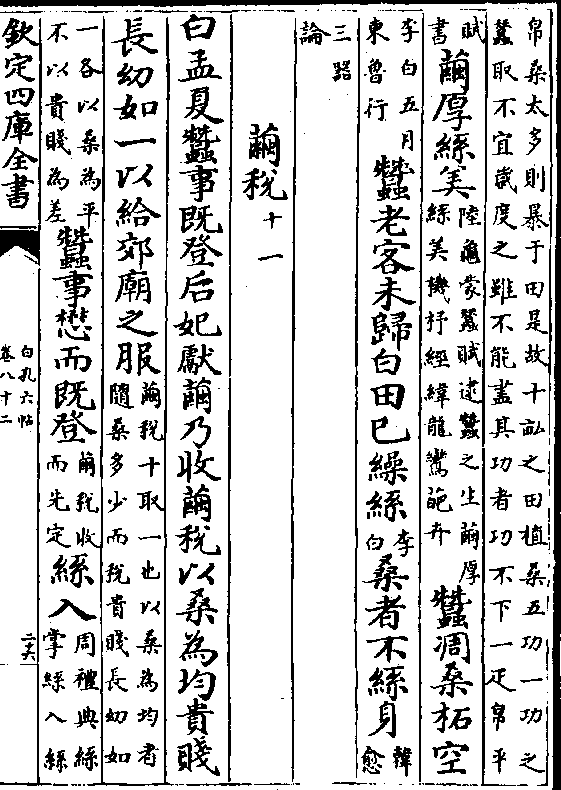 帛桑太多則暴于田是故十畝之田植桑五功一功之
蠶取不宜歲度之雖不能盡其功者功不下一疋帛平
賦
書
繭厚絲美
陸龜蒙蠶賦逮蠶之生繭厚
絲美機杼經緯龍鸞葩卉
蠶凋桑柘空
李白五月
東魯行
蠶老客未歸白田已繰絲
李
白
桑者不絲身
韓
愈
三路
論
繭稅十一
白孟夏蠶事既登后妃獻繭乃收繭稅以桑為均貴賤
長幼如一以給郊廟之服
繭稅十取一也以桑為均者
隨桑多少而稅貴賤長幼如
一各以桑為平
不以貴賤為差
蠶事懋而既登
繭稅收
而先定
絲入
周禮典絲
掌絲入絲
欽定四庫全書
白孔六帖
卷八十二